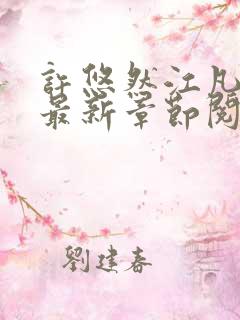 許悠然江凡
最新章節閱
劉建春